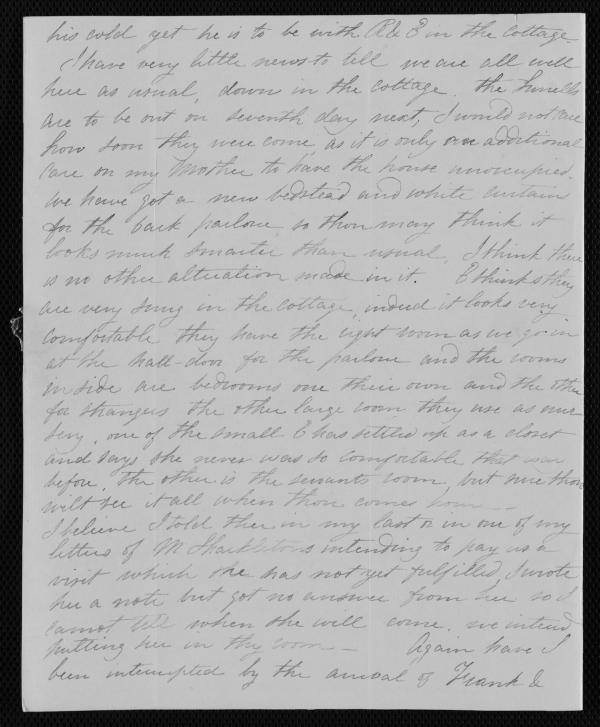 his cold yet he is to be with R & E in the cottage.
I have very little news to tell we are all well
here as usual, down in the cottage. the
are to be out on seventh day next, I would not care
how soon they were come, as it is only an additional
care on my Mother to have the house unoccupied.
we have got a new bedstead and white curtain
for the back parlour, so thou may think it
looks much smarter than usual, I think there
is no other alteration made in it. E thinks they
are very snug in the cottage, indeed it looks very
comfortable they have the right room as we go in
at the hall-door for the parlour and the rooms
inside are bedrooms one their own and the other
for strangers the other large room they use as nur-
sery, one of the small E has settled up as a closet
and says she never was so comfortable that way
before, the other is the servants room, but sure thou
wilt see it all when thou comes home —
I believe I told thee in my last or in one of my
letters of M Shackletons intending to pay us a
visit which she has not yet fulfilled, I wrote
her a note but got no answer from her so I
cannot tell when she will come. we intend
putting her in thy room — Again have I
been interrupted by the arrival of Frank &